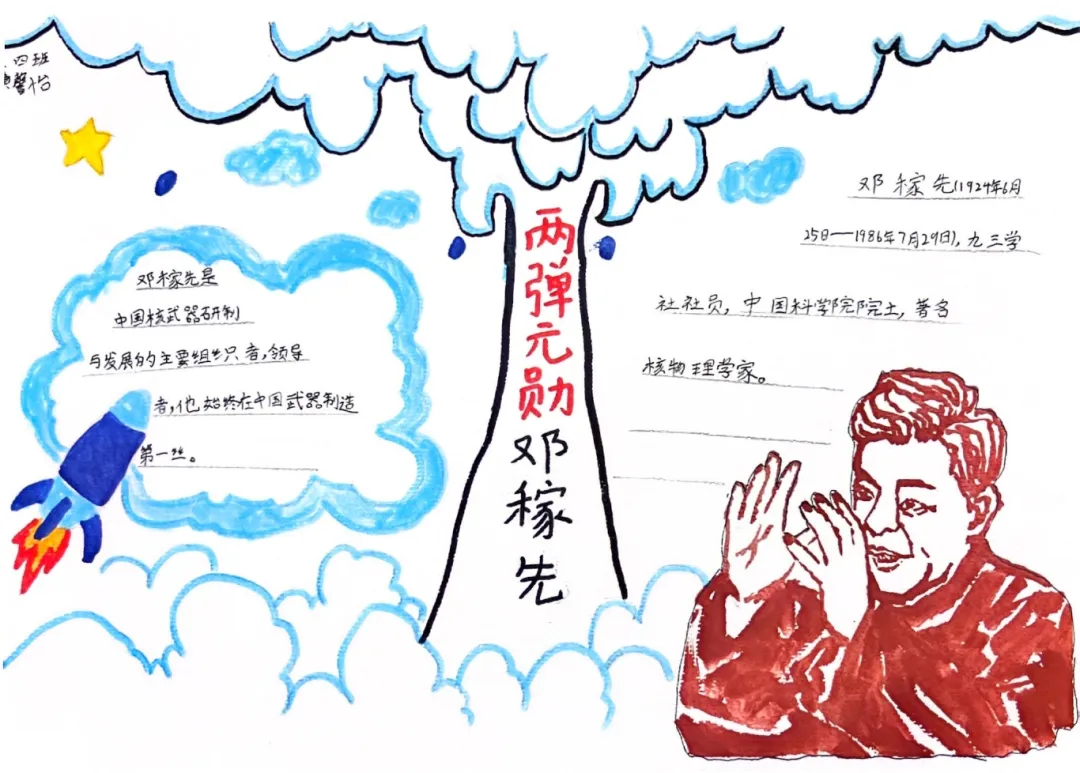 四班
馨怡
两弹元勋邓稼先
邓稼先是
中国核武器研制
与发展的主要组织者,领导
者,他始终在中国武器制造
第一丝。
邓稼先(1924年6月
25日—1986年7月29日),九三学
社社员,中国科学院院士,著名
核物理学家。